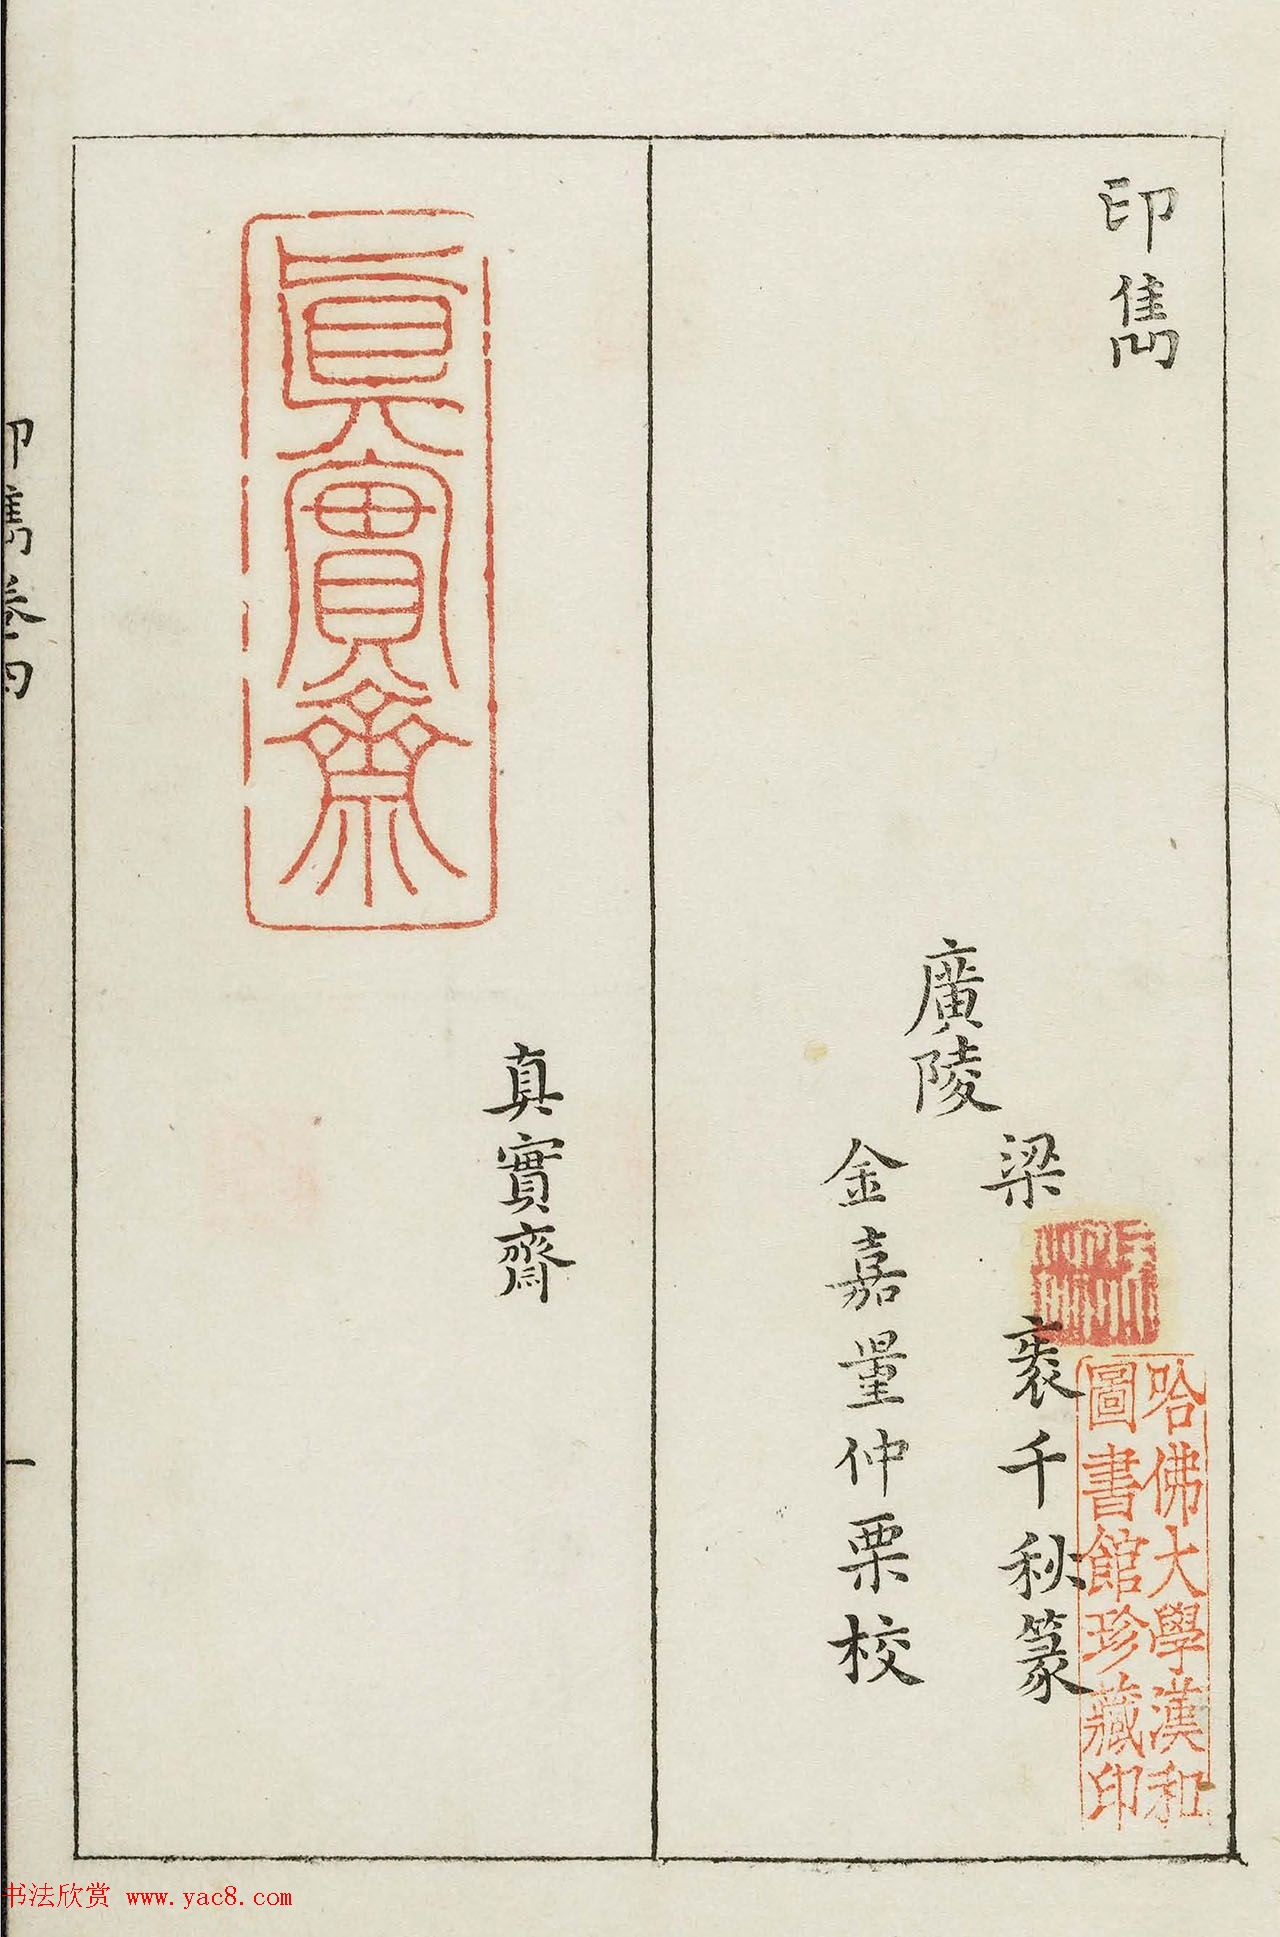 印雋
廣陵
梁袠千秋篆
金嘉量仲栗校
哈佛大學漢和
圖書館珍藏印
真實齋
真實齋
印雋卷四
一
书法欣赏 www.yac8.com